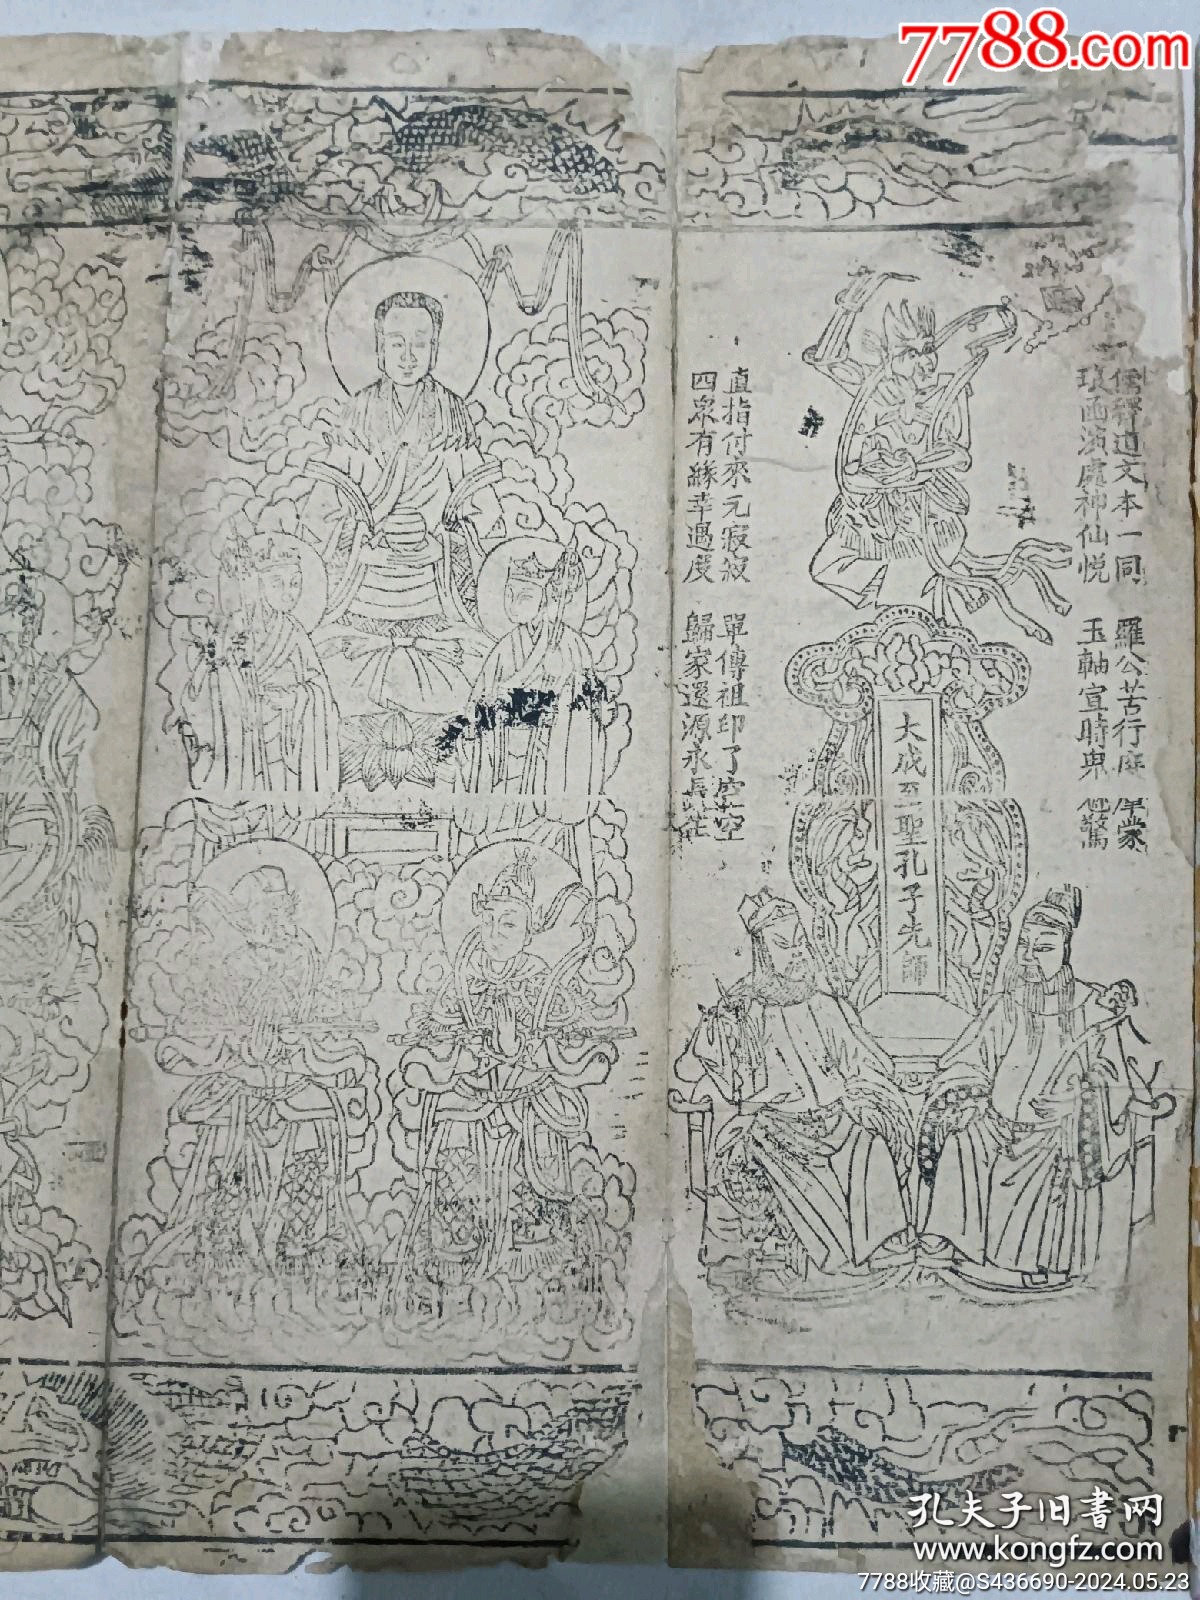 7788.com
儒釋道文本一同　羅公苦行
琅函演處神仙悅　玉軸宣時鬼
大成至聖孔子先師
直指付來元寂寂　單傳祖印了空空
四眾有緣幸遇度　歸家還源永長
孔夫子旧书网
www.kongfz.com
7788收藏@S436690-2024.05.23